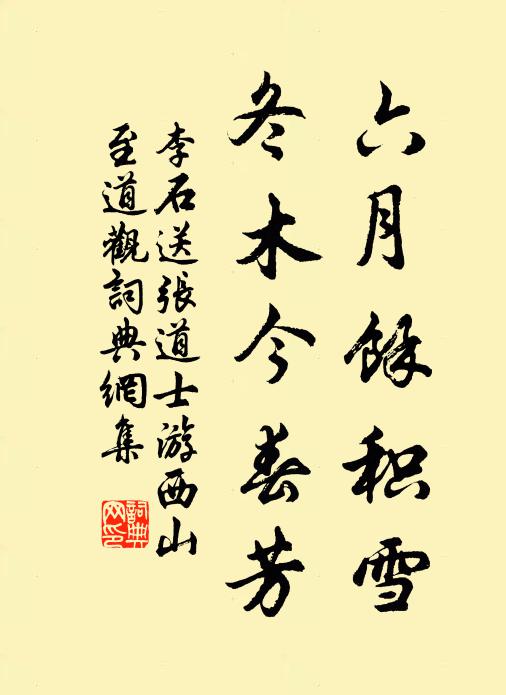 六月餘积雪
冬木今春芳
李石送張道士游西山
至道觀詞典網集
詞典
网印